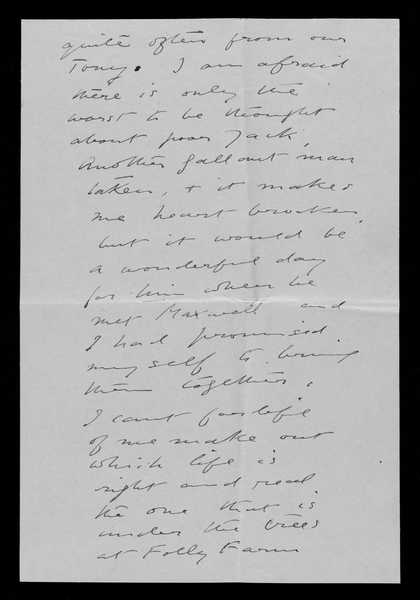 quite often from our
Tony. I am afraid
there is only the
worst to be thought
about poor Jack,
Another gallant man
taken, & it makes
me heart broken,
but it would be
a wonderful day
for him when he
met Maxwell and
I had promised
myself to bring
them together.
I cant for
of me make out
which life is
right and real
the one that is
under the trees
at Folly Farm